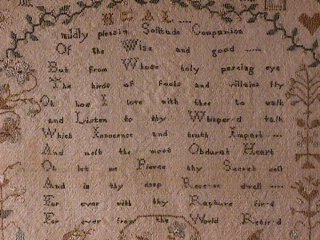 mildly pleasin Solitude Companion
Of the Wise and good
But from Whose holy piercing eye
The herds of fools and villains fly
Oh how I love with thee to walk
and Listen to thy Whisper'd talk
Which Innocence and truth Impart
And melt the most Obdurat Heart
Oh let me Pierce thy Secret cell
And in thy deep Recess dwell
For ever with thy Rapture fir'd
For ever from the World Retir'd